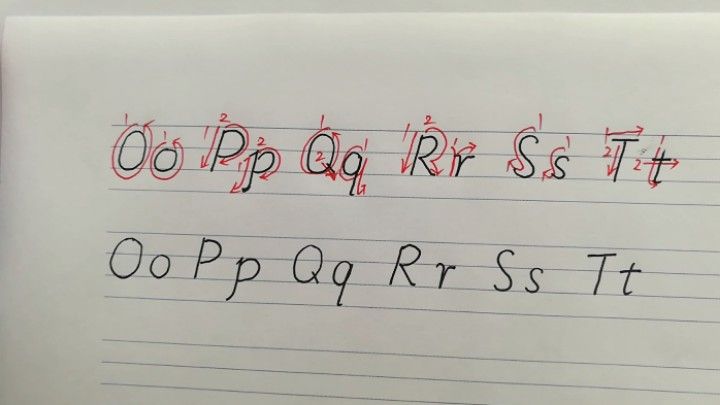 Oo Pp Qq Rr Ss Tt
Oo Pp Qq Rr Ss Tt